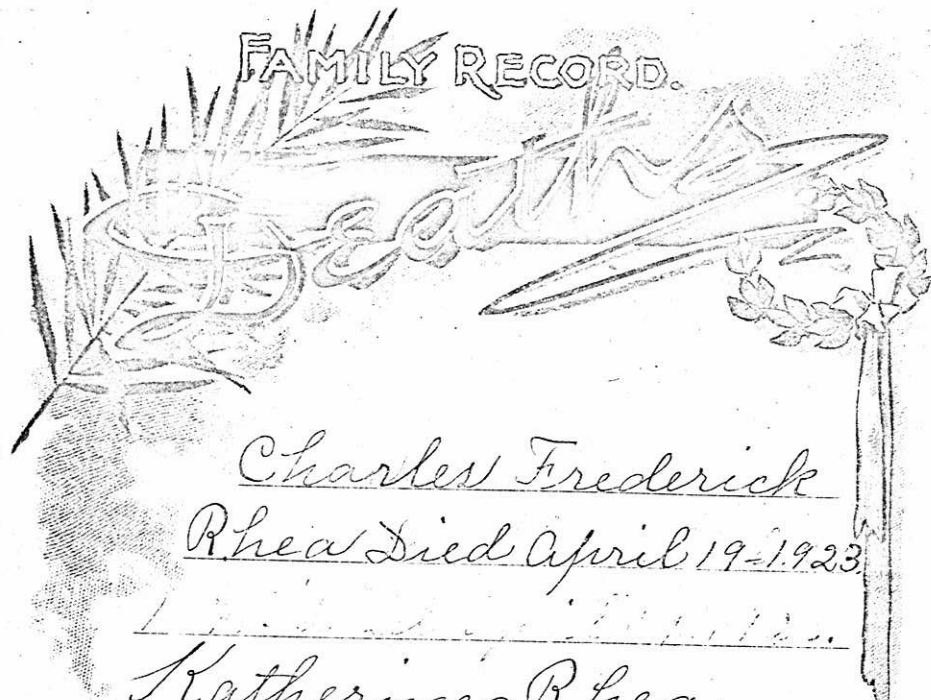 FAMILY RECORD.
Deaths
Charles Frederick
Rhea Died April 19-1923.
Katherine Rhea